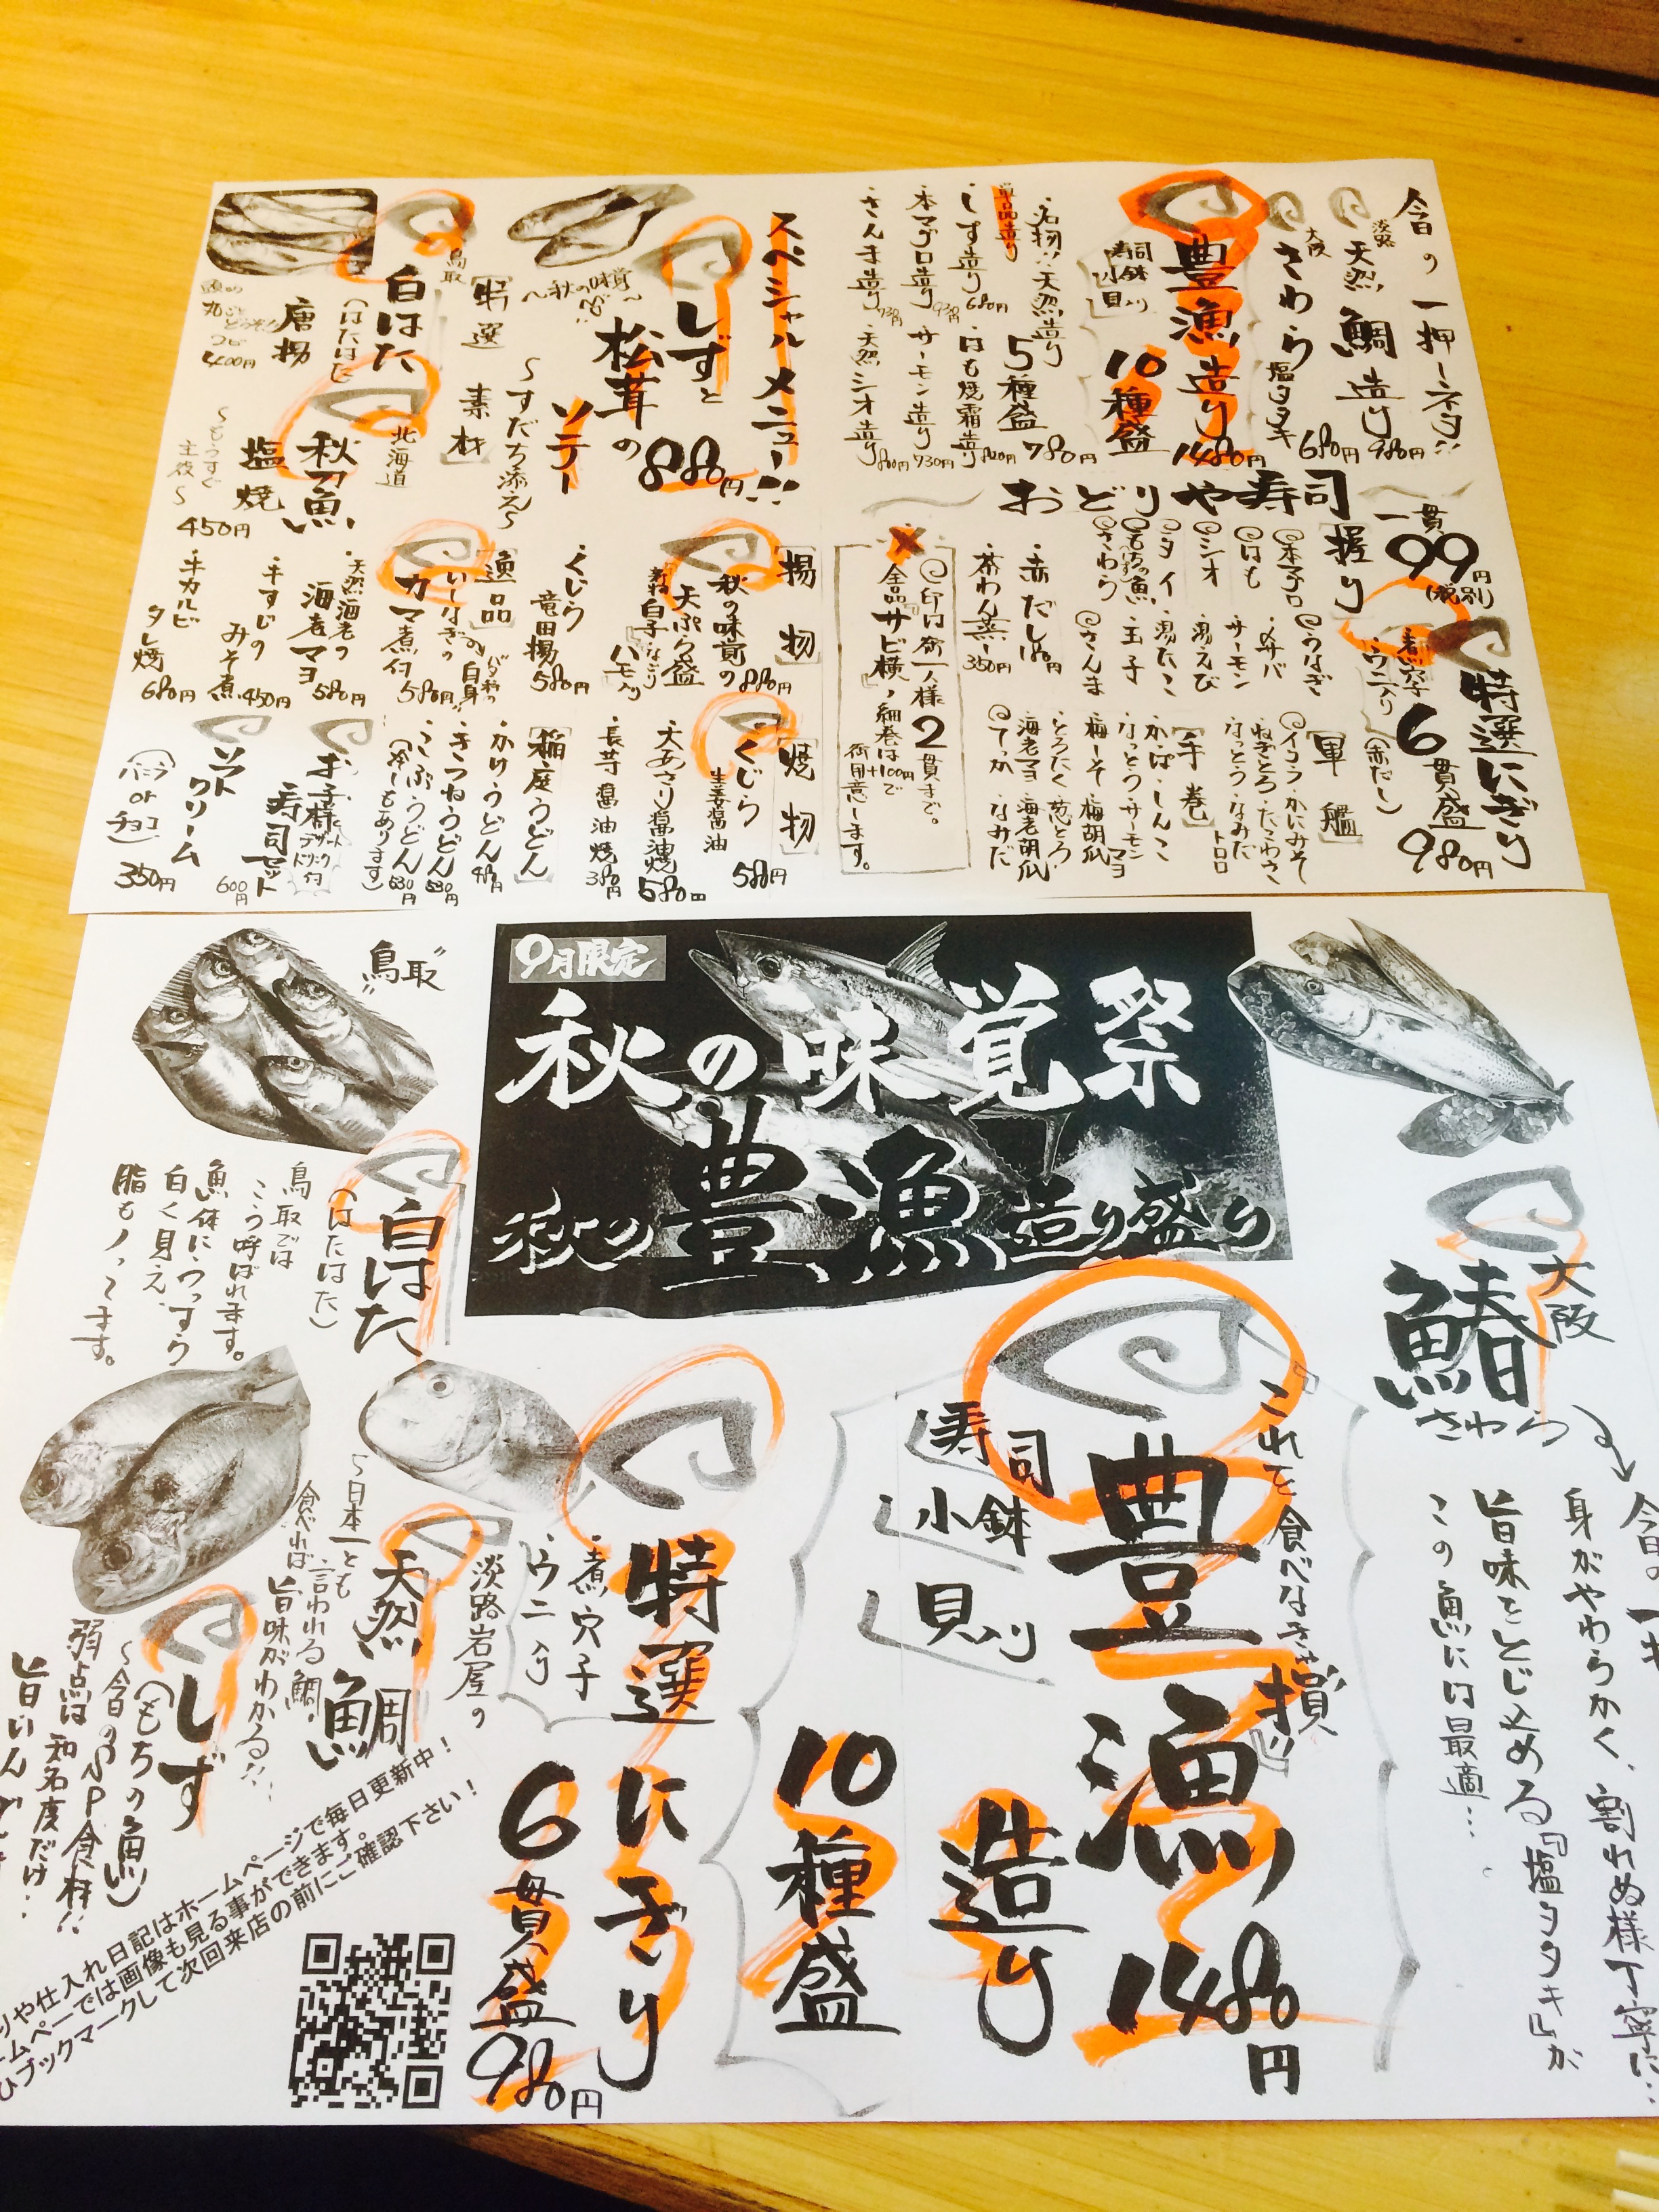 今日の一押しネタ!!
淡路
天然鯛造り 980円
大阪
さわら塩タタキ 680円
豊漁造り 1480円
10種盛
寿司
小鉢
貝入り
・名物!!天然造り
5種盛 780円
単品造り
しず造り 680円
・はも焼霜造り
本マグロ造り
サーモン造り 730円
・さんま造り
天然シオ造り 800円
おどりや寿司
一貫
99円
(税別)
特選にぎり
煮穴子
・ウニ入り
6貫盛
(赤だし)
980円
握り
本マグロ
うなぎ
はも
〆サバ
シオ
サーモン
タイ
活えび
もちの魚
活たこ
さわら
玉子
さんま
軍艦
イクラ・かにみそ
ねぎとろ・たこわさ
なっとう・なみだ
トロロ
手巻
かっぱ・しんこ
なっとう・サーモンマヨ
梅しそ 梅胡瓜
とろたく 葱とろ
海老マヨ 海老胡瓜
てっか なみだ
・赤だし 180円
・茶わん蒸し 350円
印は御一人様2貫まで。
全品『サビ横』
細巻は+100円で
御用意します。
スペシャルメニュー!!
しずと
松茸の
ソテー
880円
〜すだち添え〜
〜秋の味覚
特選素材
鳥取
白はた
(はたはた)
唐揚
400円
北海道
秋刀魚
塩焼
〜もうすぐ
主役〜
450円
揚物
秋の味覚の
天ぷら盛
880円
白子
ハモ入り
・くじら
竜田揚 580円
逸品
カマ煮付 580円
・天然海老の
海老マヨ 580円
・牛すじの
みそ煮 450円
・牛カルビ
タレ焼 680円
焼物
くじら
生姜醤油
580円
大あさり醤油焼 580円
長芋醤油焼 380円
稲庭うどん
・かけうどん 480円
・きつねうどん 530円
・こぶうどん 530円
(冷しもあります)
お子様
寿司セット
デザート
ドリンク付
600円
ソフト
クリーム
(バニラ
or
チョコ)
350円
9月限定
秋の味覚祭
秋の豊漁造り盛り
大阪
鰆
さわら
身がやわらかく、割れぬ様丁寧に…
旨味をとじ込める『塩タタキ』が
この魚には最適…
『これを食べなきゃ損!!』
豊漁
造り
1480円
寿司
小鉢
貝入り
10種盛
特選にぎり
煮穴子
・ウニ入り
6貫盛
980円
淡路岩屋の
天然鯛
〜日本一とも
言われる鯛・
食べれば旨味がわかる!!
"鳥取"
白はた
(はたはた)
鳥取では
こう呼ばれます。
魚体にうっすら
白く見え、
脂もノってます。
しず
(もちの魚)
〜今日のNP食材!!
弱点は知名度だけ…
りや仕入れ日記はホームページで毎日更新中!
ームページでは画像も見る事ができます。
ひブックマークして次回来店の前にご確認下さい!